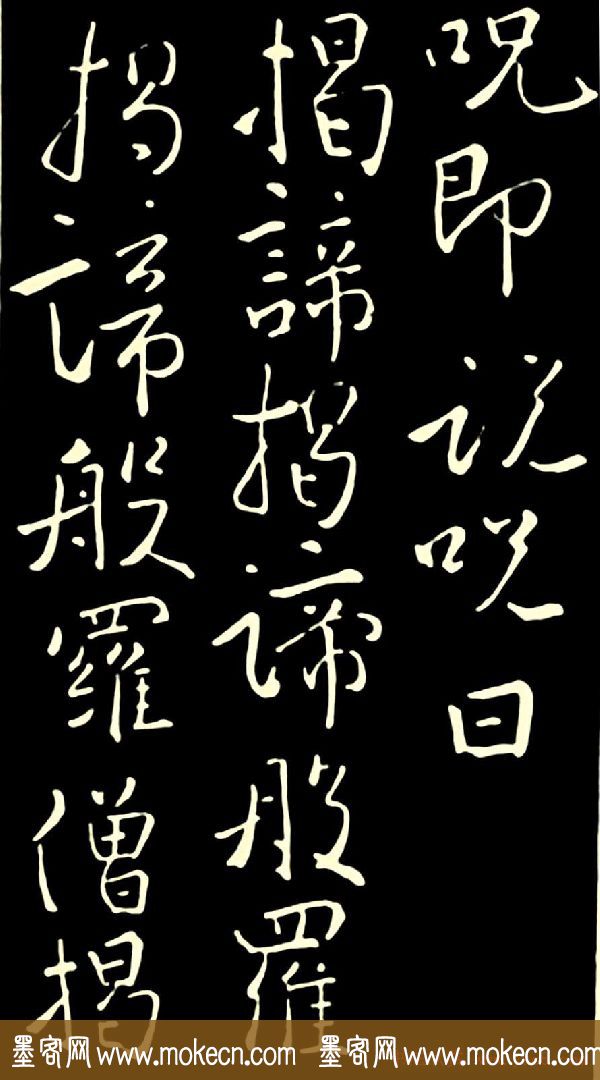 呪即説呪曰
揭諦揭諦般羅
揭諦般羅僧揭
墨客网 www.mokecn.com 墨客网 www.mokecn.com